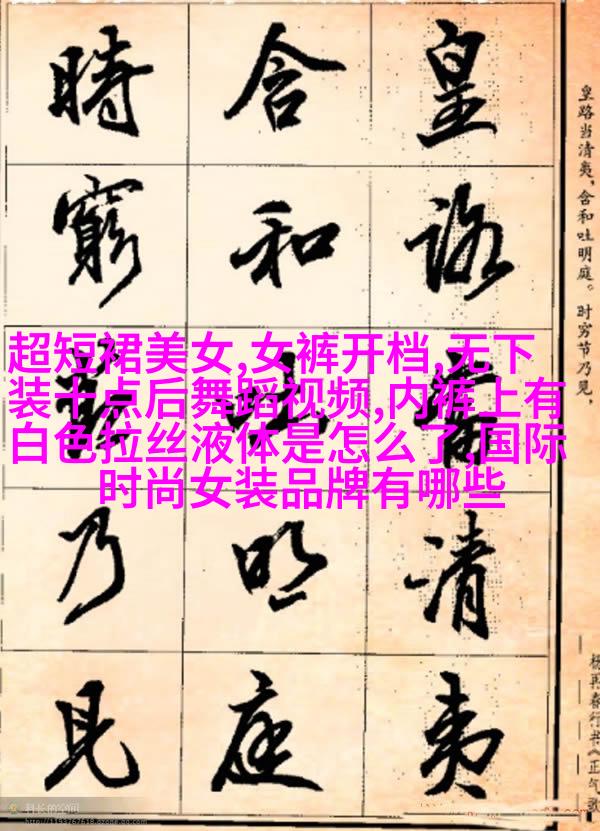 皇路當清夷
含和吐明庭
時窮節乃見
皇路当清夷,含和吐明庭。时穷节乃见,
杨再春行书《正气歌
超短裙美女,女裤开档,无下
装十点后舞蹈视频,内裤上有
白色拉丝液体是怎么了,国际
时尚女装品牌有哪些
科长的空间
http://1193767618.qzone.qq.com